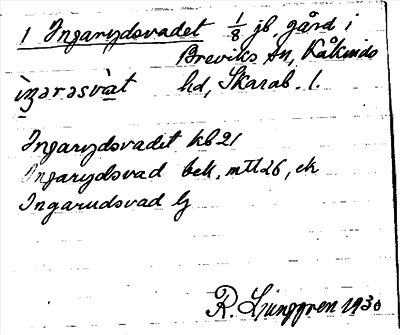 1 Ingarydsvadet 1/8 jb. gård i
Breviks sn, Kåkinds
ìŋarasvàt hd, Skarab. l.
Ingarydsvadet kb 21
Ingarydsvad bek, mtl 26, ek
Ingarudsvad Lj
R. Ljunggren 1930